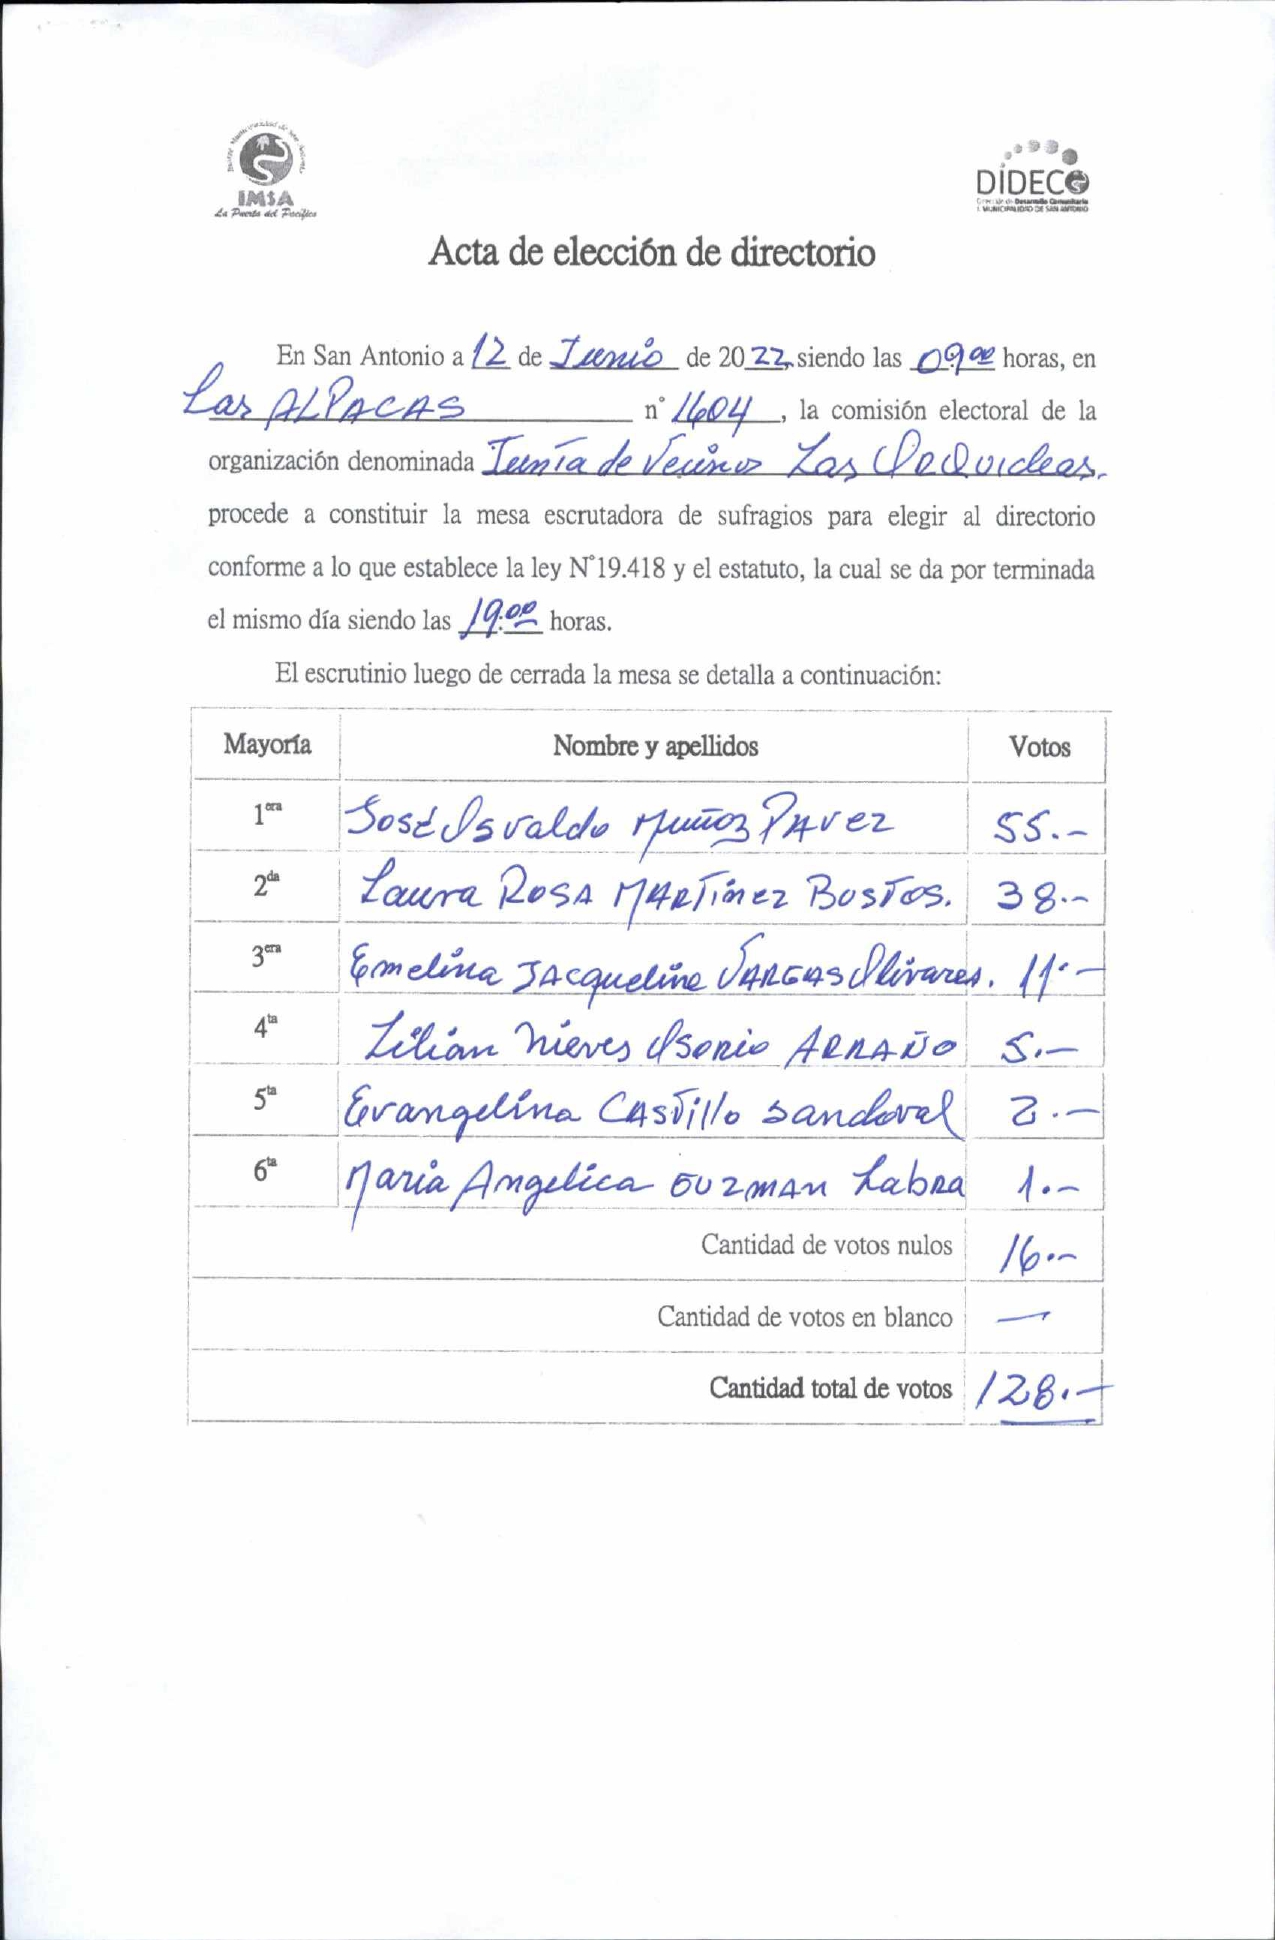 IMSA
La Puerta del Pacífico
DIDECO
Acta de elección de directorio
En San Antonio a 12 de Junio de 2022, siendo las 09:00 horas, en
Las ALPACAS n° 1604, la comisión electoral de la
organización denominada Junta de Vecinos Las ORQuideas.
procede a constituir la mesa escrutadora de sufragios para elegir al directorio
conforme a lo que establece la ley N°19.418 y el estatuto, la cual se da por terminada
el mismo día siendo las 19:00 horas.
El escrutinio luego de cerrada la mesa se detalla a continuación:
Mayoría Nombre y apellidos Votos
1era José Osvaldo Muñoz PAvez 55.-
2da Laura ROSA MARTínez BUSTOS. 38.-
3era Emelina JAcqueline VARGAS Olivares. 11.-
4ta Lilian Nieves Osorio ARRAÑO 5.-
5ta Evangelina CASTillo Sandoval 2.-
6ta María Angelica GUZMAN Labra 1.-
Cantidad de votos nulos 16.-
Cantidad de votos en blanco —
Cantidad total de votos 128.-